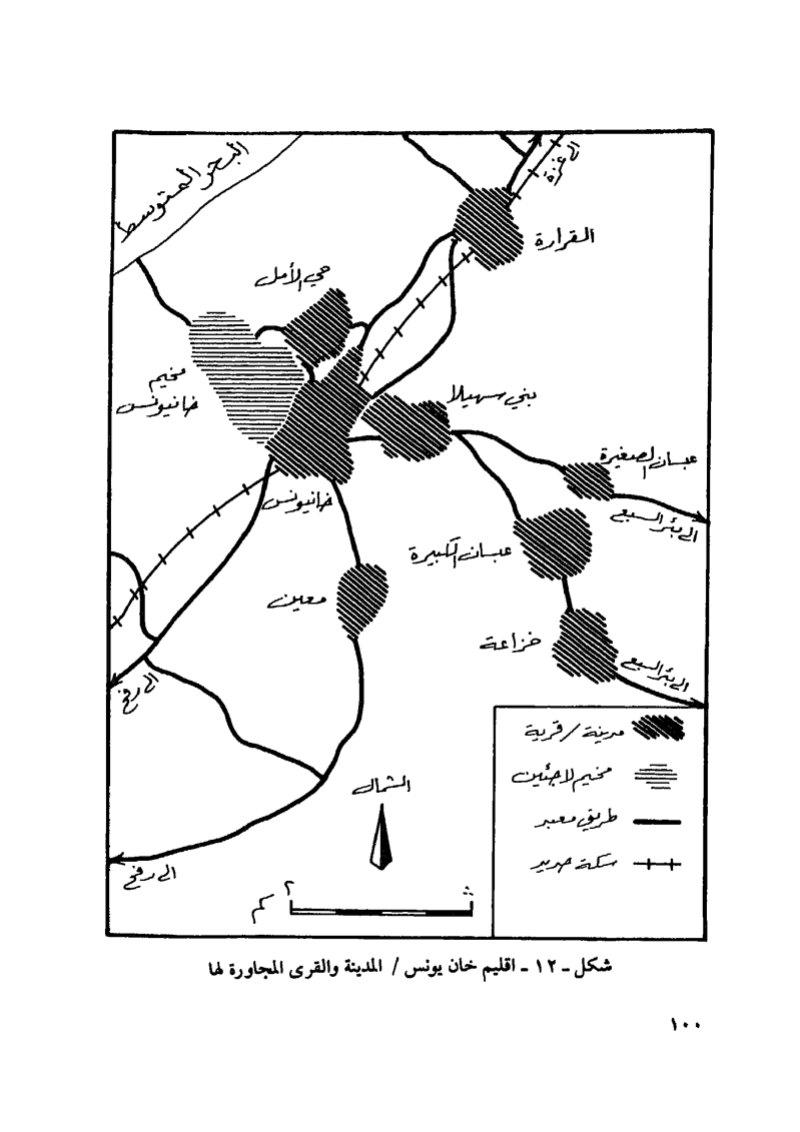 البحر المتوسط
الى غزة
القرارة
حي الأمل
مخيم
خانيونس
بني سهيلا
عبسان الصغيرة
الى بئر السبع
خانيونس
عبسان الكبيرة
معين
خزاعة
الى بئر السبع
الى رفح
مدينة / قرية
مخيم لاجئين
طريق معبر
سكة حديد
الشمال
الى رفح
٢
كم
شكل ـ ١٢ ـ اقليم خان يونس / المدينة والقرى المجاورة لها
١٠٠